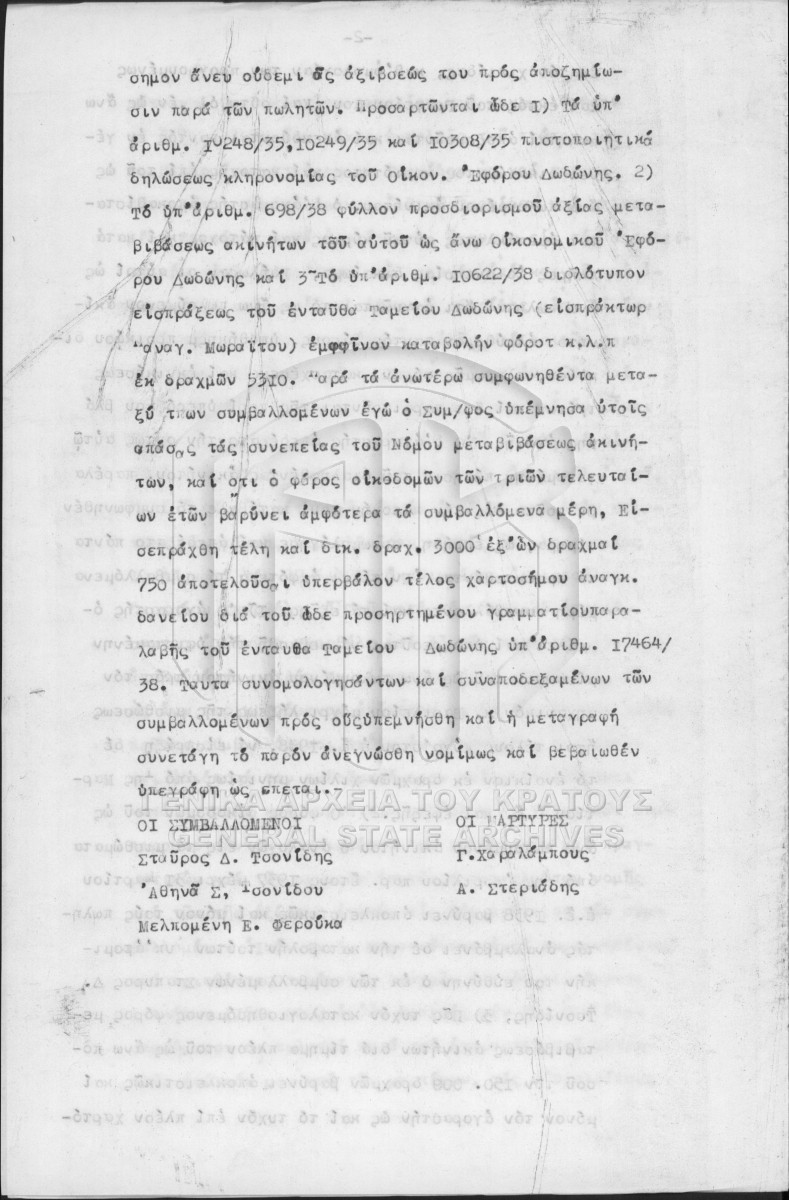 σημον ἄνευ οὐδεμιᾶς ἀξιὅσεώς του πρός ἀποζημίω-
σιν παρά τῶν πωλητῶν. Προσαρτῶνται ὧδε Ι) Τά ὑπ'
ἀριθμ. Ι0248/35,Ι0249/35 καί Ι0308/35 πιστοποιητικά
δηλώσεως κληρονομίας τοῦ Οἰκον. Ἐφόρου Δωδώνης. 2)
Τό ὑπ'ἀριθμ. 698/38 φύλλον προσδιορισμοῦ ἀξίας μετα-
βιβάσεως ακινήτων τοῦ αὐτοῦ ὡς ἄνω Οἰκονομικοῦ Ἐφό-
ρου Δωδώνης καί 3-Τό ὑπ'ἀριθμ. Ι0622/38 διολότυπον
εἰσπράξεως τοῦ ἐνταῦθα Ταμείου Δωδώνης (εἰσπράκτωρ
Παναγ. Μωραΐτου) ἐμφφῖνον καταβολήν φόροτ κ.λ.π
ἐκ δραχμῶν 53Ι0. Παρά τά ἀνωτέρω συμφωνηθέντα μετα-
ξύ των συμβαλλομένων ἐγώ ὁ Συμ/φος ὑπέμνησα ὐτοῖς
απάσας τάς συνεπείας τοῦ Νόμου μεταβιβάσεως ἀκινή-
των, καί ὅτι ὁ φόρος οἰκοδομῶν τῶν τριῶν τελευταί-
ων ἐτῶν βαρύνει ἀμφότερα τά συμβαλλόμενα μέρη, Εἰ-
σεπράχθη τέλη καί δικ. δραχ. 3000 ἐξ ὧν δραχμαί
750 ἀποτελοῦσαι ὑπερβάλον τέλος χαρτοσήμου ἀναγκ.
δανείου διά τοῦ ὧδε προσηρτημένου γραμματίουπαρα-
λαβῆς τοῦ ἐνταυθα Ταμείου Δωδώνης ὑπ'ἀριθμ. Ι7464/
38. Ταυτα συνομολογησάντων καί συναποδεξαμένων τῶν
συμβαλλομένων πρός οὕςὑπεμνήσθη καί ἡ μεταγραφή
συνετάγη τό παρόν ἀνεγνώσθη νομίμως καί βεβαιωθέν
ὑπεγράφη ὡς επεται.-
ΓΕΝΙΚΑ ΑΡΧΕΙΑ ΤΟΥ ΚΡΑΤΟΥΣ
ΟΙ ΣΥΜΒΑΛΛΟΜΕΝΟΙ ΟΙ ΜΑΡΤΥΡΕΣ
GENERAL STATE ARCHIVES
Σταῦρος Δ. Τσονίδης Γ.Χαραλάμπους
Ἀθηνᾶ Σ, Τσονίδου Α. Στεριάδης
Μελπομένη Ε. Φερούκα